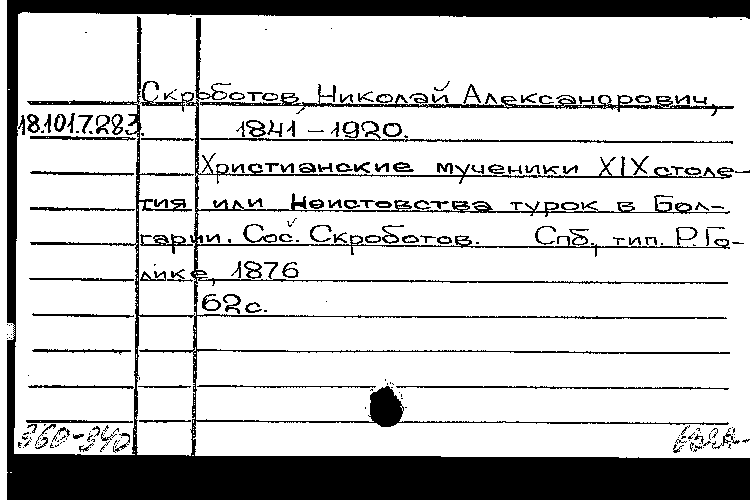 Скроботов, Николай Александрович,
18.101.7.283. 1841 – 1920.
Христианские мученики XIX столе-
тия или Неистовства турок в Бол-
гарии. Сос. Скроботов. Спб., тип. Р. Го-
лике, 1876
62 с.
360-940